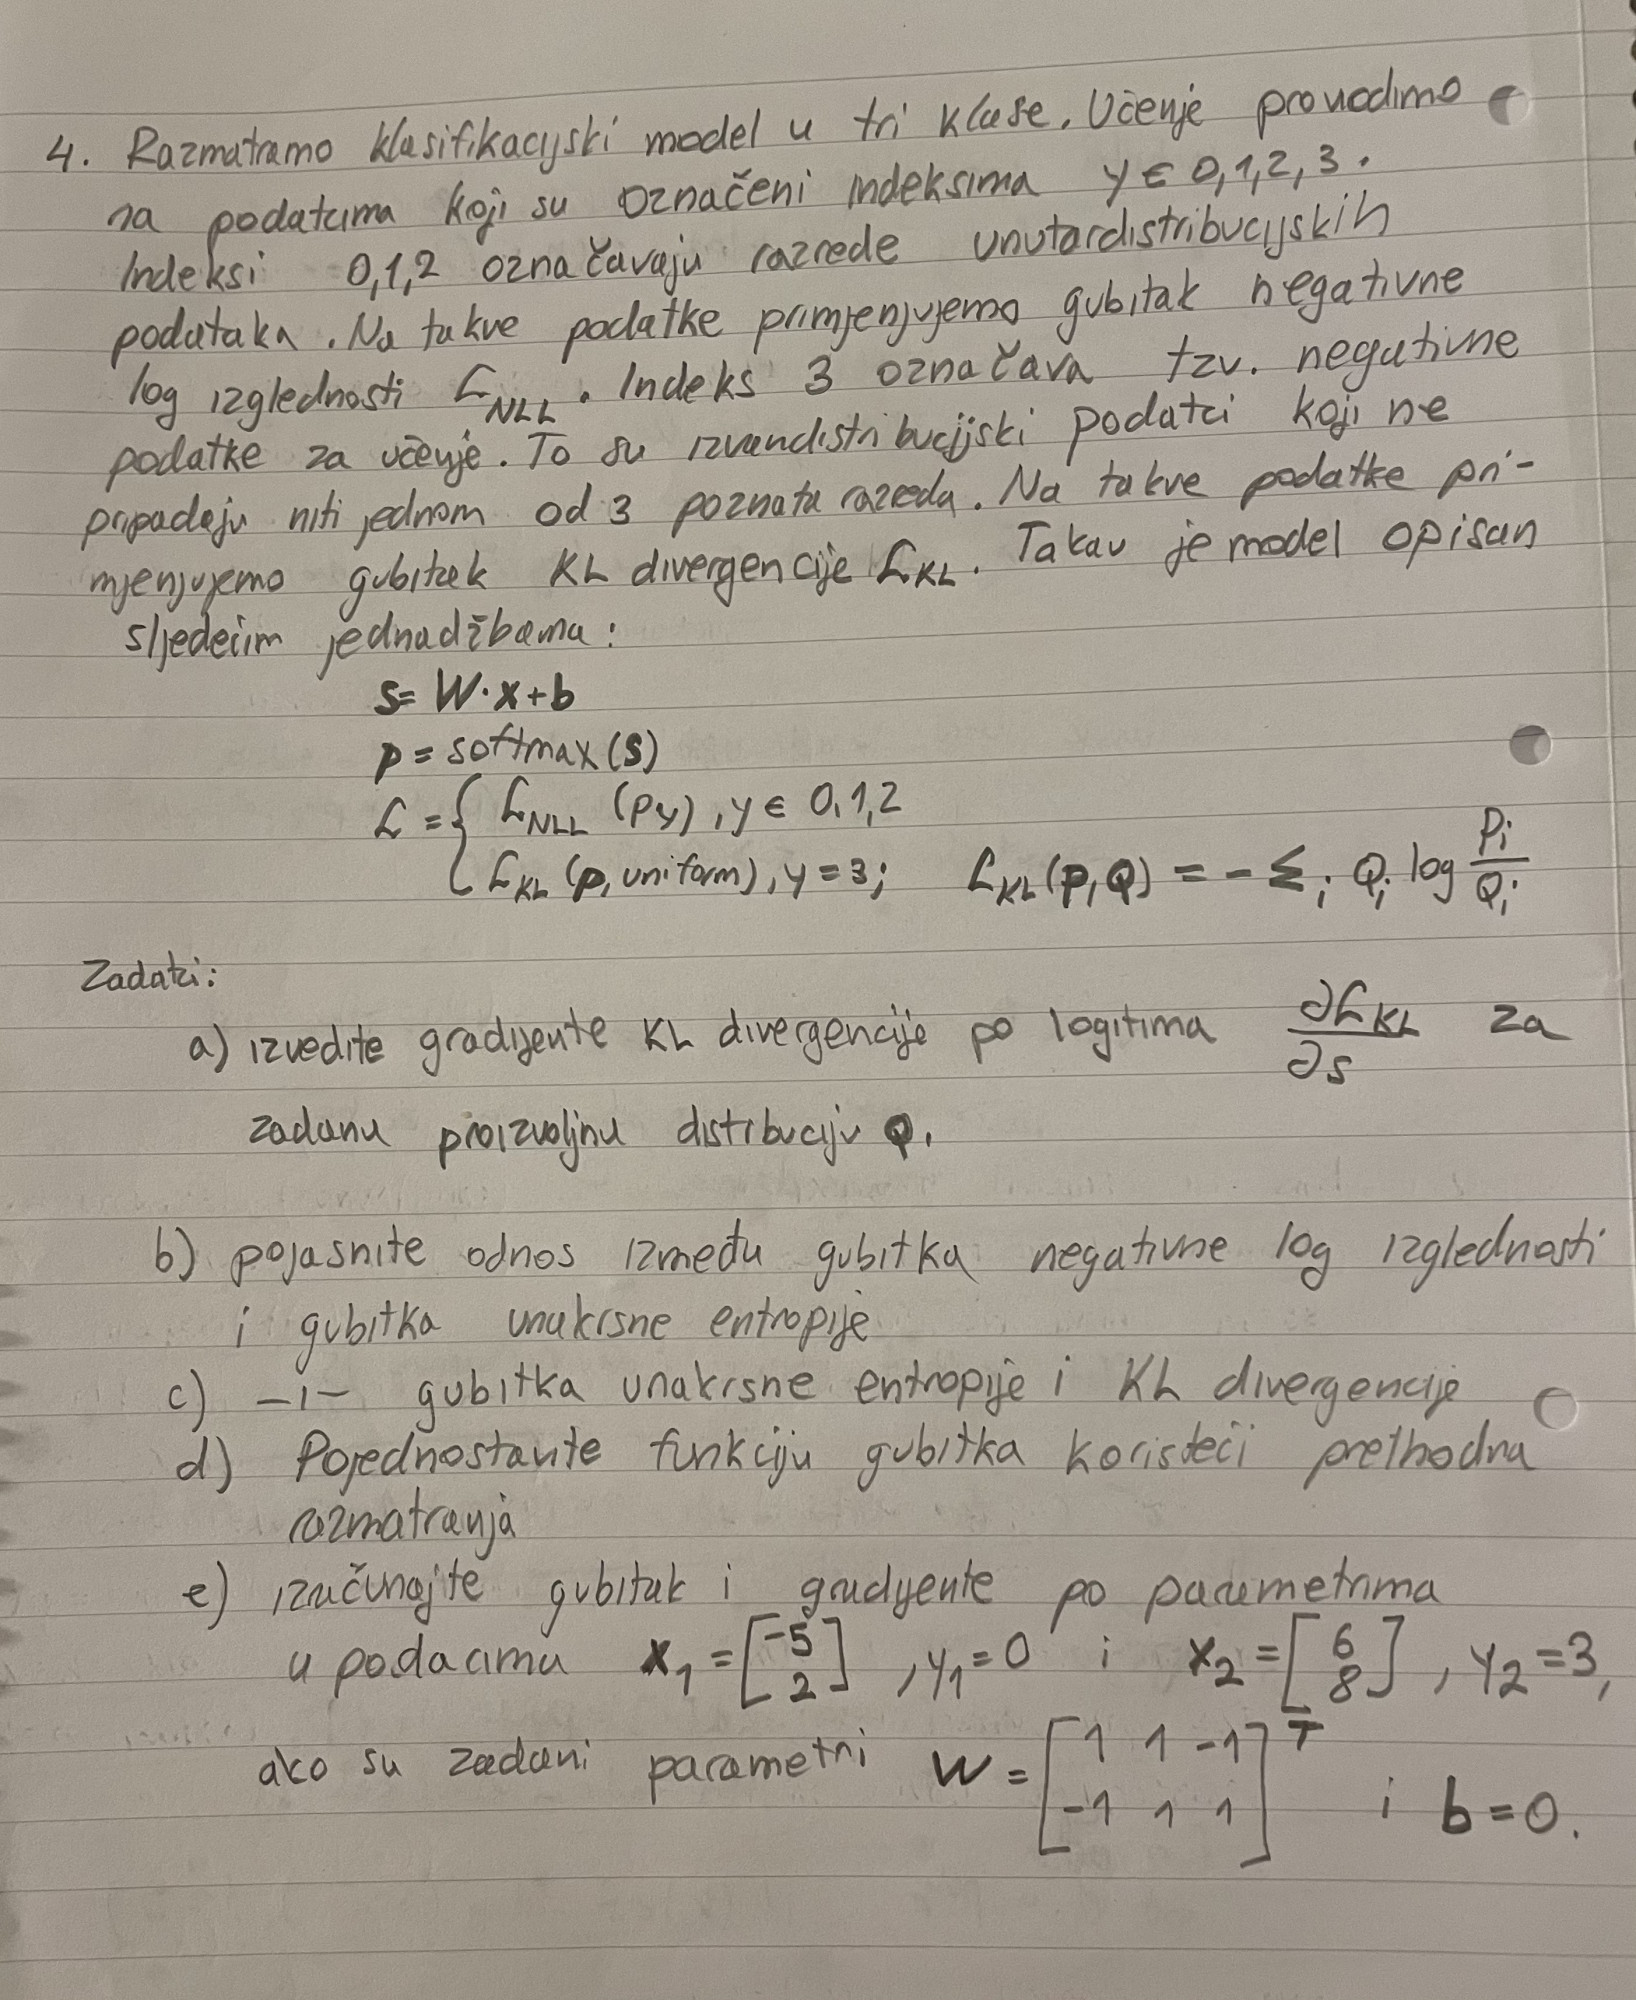 4. Razmatramo klasifikacijski model u tri klase. Učenje provodimo
na podatcima koji su označeni indeksima y ∈ 0,1,2,3.
Indeksi 0,1,2 označavaju razrede unutardistribucijskih
podataka. Na takve podatke primjenjujemo gubitak negativne
log izglednosti ℒ_NLL. Indeks 3 označava tzv. negativne
podatke za učenje. To su izvandistribucijski podatci koji ne
pripadaju niti jednom od 3 poznata razreda. Na takve podatke pri-
mjenjujemo gubitak KL divergencije ℒ_KL. Takav je model opisan
sljedećim jednadžbama:
s = W·x+b
p = softmax(s)
ℒ = { ℒ_NLL (p_y), y ∈ 0,1,2
ℒ_KL (p, uniform), y = 3; ℒ_KL(p,Q) = -Σ_i Q_i log P_i/Q_i
Zadatci:
a) izvedite gradijente KL divergencije po logitima ∂ℒ_KL/∂s za
zadanu proizvoljnu distribuciju Q.
b) pojasnite odnos između gubitka negativne log izglednosti
i gubitka unakrsne entropije
c) -ı- gubitka unakrsne entropije i KL divergencije
d) Pojednostavite funkciju gubitka koristeći prethodna
razmatranja
e) izračunajte gubitak i gradijente po parametrima
u podacima x_1 = [-5 2], y_1 = 0 i x_2 = [6 8], y_2 = 3,
ako su zadani parametri W = [1 1 -1 -1 1 1]^T i b = 0.